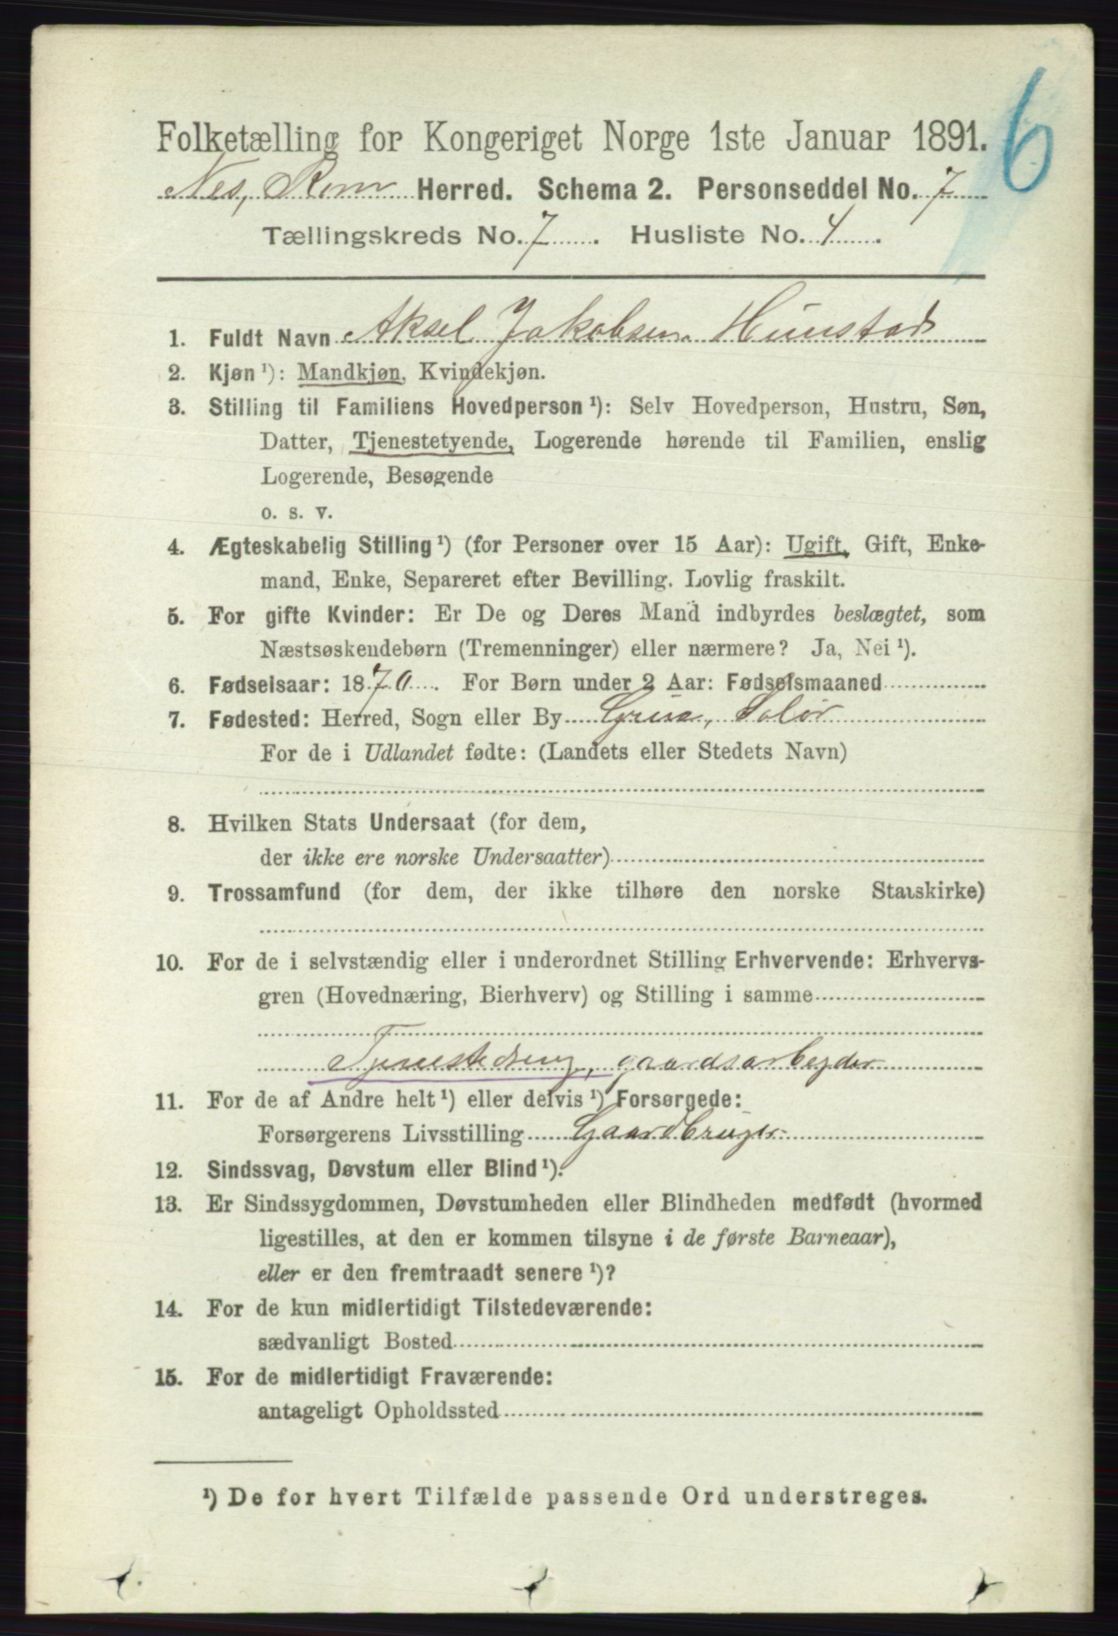 6
Folketælling for Kongeriget Norge 1ste Januar 1891.
Nes, Rom Herred. Schema 2. Personseddel No. 7
Tællingskreds No. 7. Husliste No. 4.
1. Fuldt Navn Aksel Jakobsen Hunstad
2. Kjøn ¹): Mandkjøn, Kvindekjøn.
3. Stilling til Familiens Hovedperson ¹): Selv Hovedperson, Hustru, Søn,
Datter, Tjenestetyende, Logerende hørende til Familien, enslig
Logerende, Besøgende
o. s. v.
4. Ægteskabelig Stilling ¹) (for Personer over 15 Aar): Ugift, Gift, Enke-
mand, Enke, Separeret efter Bevilling. Lovlig fraskilt.
5. For gifte Kvinder: Er De og Deres Mand indbyrdes beslægtet, som
Næstsøskendebørn (Tremenninger) eller nærmere? Ja, Nei ¹).
6. Fødselsaar: 1870. For Børn under 2 Aar: Fødselsmaaned
7. Fødested: Herred, Sogn eller By Grue, Solør
For de i Udlandet fødte: (Landets eller Stedets Navn)
8. Hvilken Stats Undersaat (for dem,
der ikke ere norske Undersaatter)
9. Trossamfund (for dem, der ikke tilhøre den norske Statskirke)
10. For de i selvstændig eller i underordnet Stilling Erhvervende: Erhvervs-
gren (Hovednæring, Bierhverv) og Stilling i samme
Tjenestedreng, gaardsarbeyder
11. For de af Andre helt ¹) eller delvis ¹) Forsørgede:
Forsørgerens Livsstilling Gaardbruger
12. Sindssvag, Døvstum eller Blind ¹).
13. Er Sindssygdommen, Døvstumheden eller Blindheden medfødt (hvormed
ligestilles, at den er kommen tilsyne i de første Barneaar),
eller er den fremtraadt senere ¹)?
14. For de kun midlertidigt Tilstedeværende:
sædvanligt Bosted
15. For de midlertidigt Fraværende:
antageligt Opholdssted
¹) De for hvert Tilfælde passende Ord understreges.